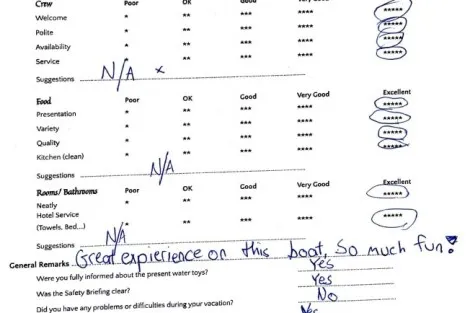 Crew Poor OK Good Very Good
Welcome * ** *** **** *****
Polite * ** *** **** *****
Availability * ** *** **** *****
Service * ** *** **** *****
Suggestions N/A x
Food Poor OK Good Very Good Excellent
Presentation * ** *** **** *****
Variety * ** *** **** *****
Quality * ** *** **** *****
Kitchen (clean) * ** *** **** *****
Suggestions N/A
Rooms/ Bathrooms Poor OK Good Very Good Excellent
Neatly * ** *** **** *****
Hotel Service
(Towels. Bed...) * ** *** **** *****
Suggestions N/A
General Remarks Great expierience on this boat, So much fun!
Were you fully informed about the present water toys? Yes
Was the Safety Briefing clear? Yes
Did you have any problems or difficulties during your vacation? No